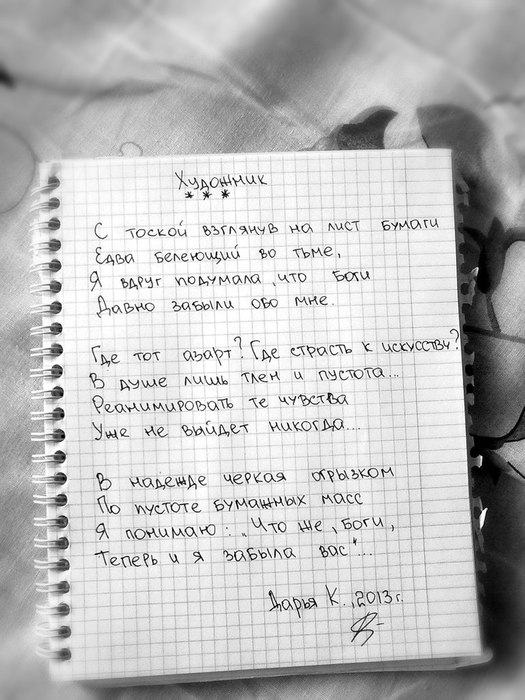 Художник
* * *
С тоской взглянув на лист бумаги
Едва белеющий во тьме,
Я вдруг подумала, что Боги
Давно забыли обо мне.
Где тот азарт? Где страсть к искусству?
В душе лишь тлен и пустота...
Реанимировать те чувства
Уже не выйдет никогда...
В надежде черкая огрызком
По пустоте бумажных масс
Я понимаю: „Что же, Боги,
Теперь и я забыла вас"...
Дарья К., 2013 г.